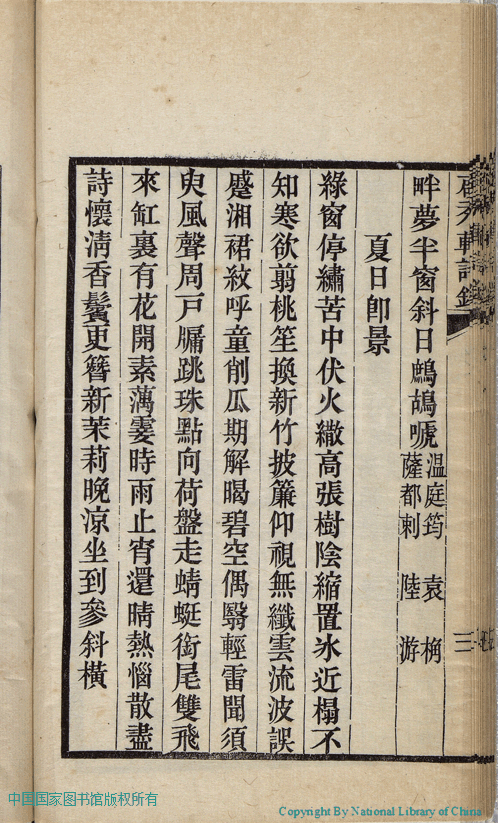 畔夢半窗斜日鷓鴣嗁溫庭筠 袁桷
薩都剌 陸游
夏日卽景
綠窗停繡苦中伏火繖高張樹陰縮置氷近榻不
知寒欲翦桃笙換新竹披簾仰視無纖雲流波誤
蹙湘裙紋呼童削瓜期解暍碧空偶翳輕雷聞須
臾風聲周戸牖跳珠點向荷盤走蜻蜓銜尾雙飛
來缸裏有花開素藕霎時雨止宵還晴熱惱散盡
詩懷淸香鬢更簪新茉莉晚涼坐到參斜橫
三
中国国家图书馆版权所有
Copyright By National Library of China